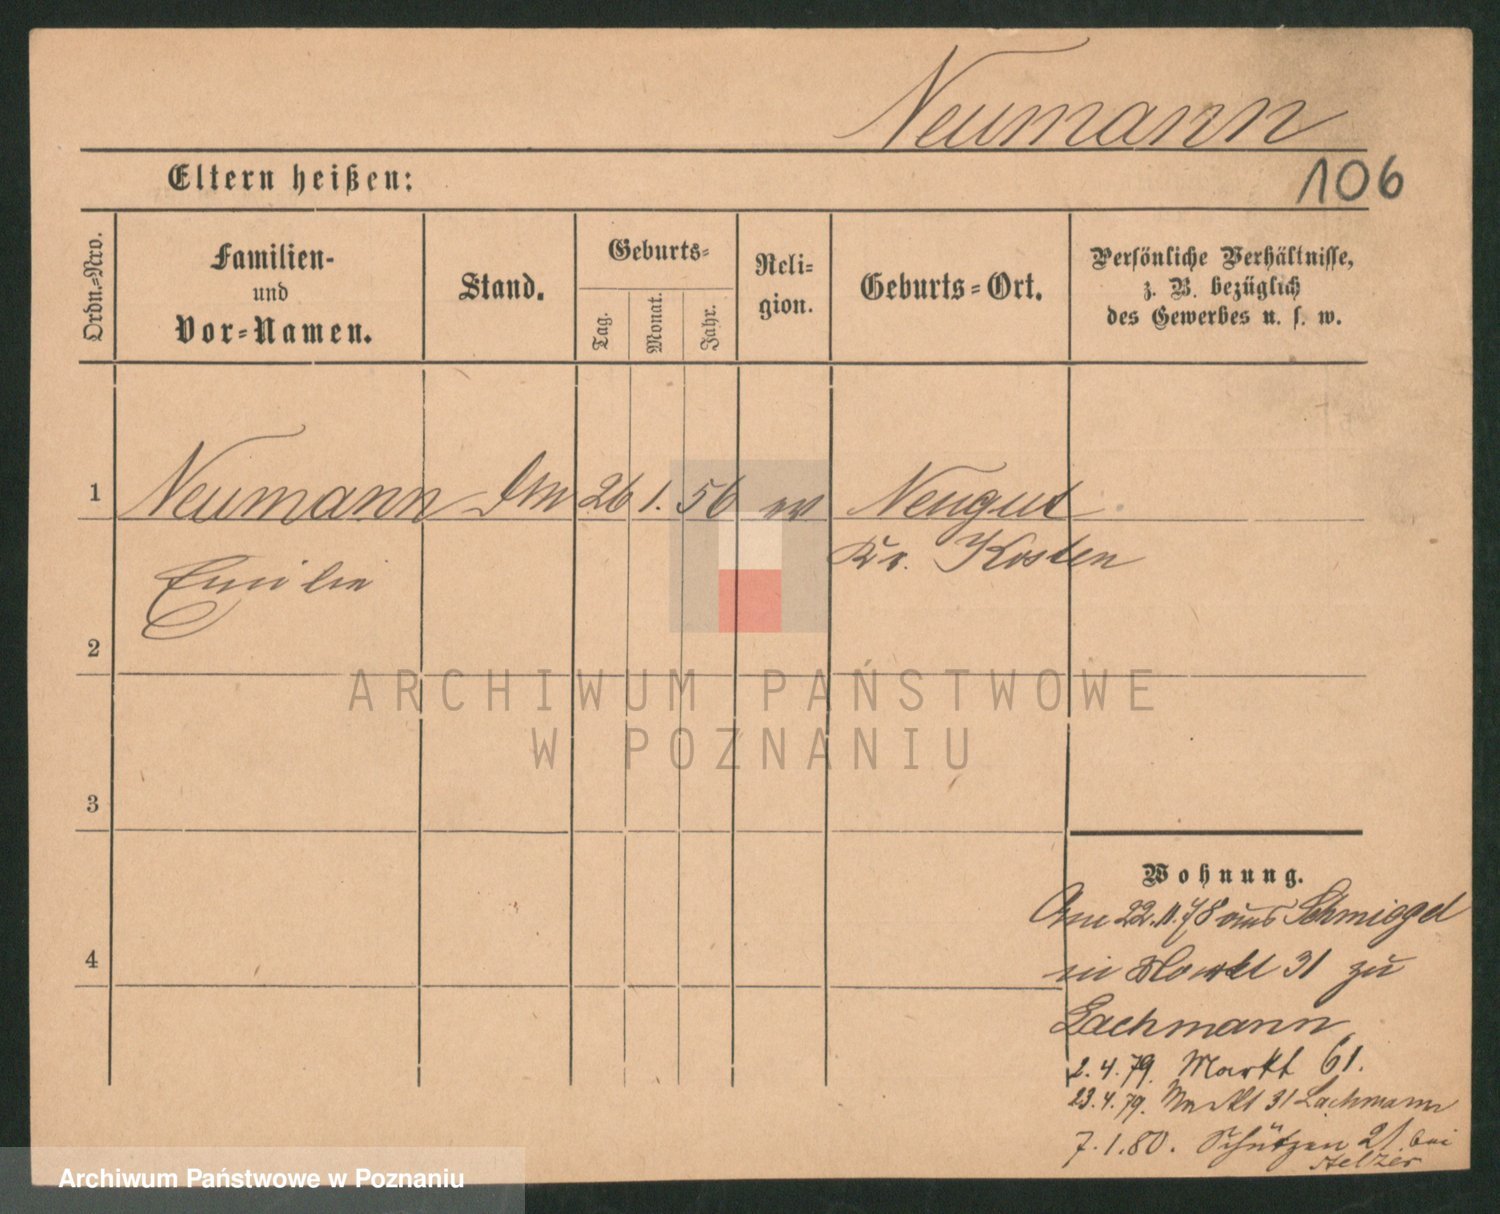 Neumann
106
Eltern heißen:
Ordn.-Nro.
Familien-
und
Vor-Namen.
Stand.
Geburts-
Tag.
Monat.
Jahr.
Reli-
gion.
Geburts-Ort.
Persönliche Verhältnisse,
z. B. bezüglich
des Gewerbes u. s. w.
1 Neumann 26 1. 56 ev Neugut
Emilie Kr. Kosten
2
3
4
ARCHIWUM PAŃSTWOWE
W POZNANIU
Wohnung.
Am 22.11.78 aus Schmiegel
in Markt 31 zu
Lachmann
2.4.79. Markt 61.
23.4.79. Markt 31 Lachmann
7.1.80. Schützen 21. bei
Stelzer
Archiwum Państwowe w Poznaniu